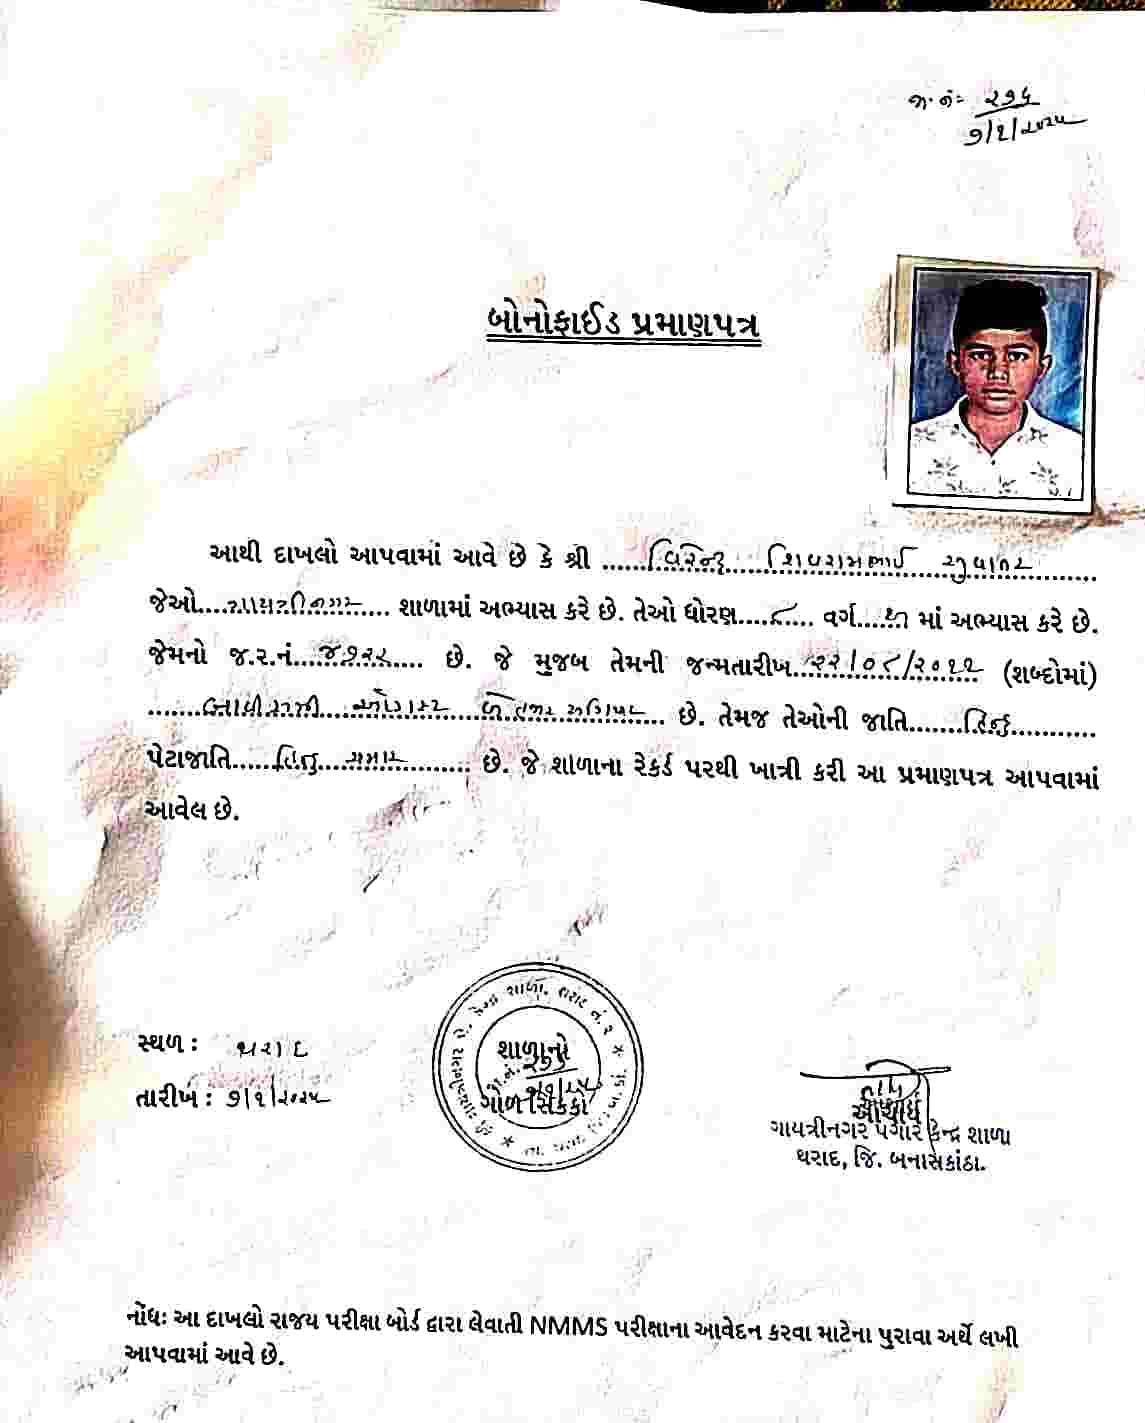 જા. નં= ૨૭૬
૭/૧/૨૦૨૫
બોનોફાઈડ પ્રમાણપત્ર
આથી દાખલો આપવામાં આવે છે કે શ્રી ......વિરેન્દ્ર શિવરામભાઈ સુથાર......
જેઓ....ગાયત્રીનગર.... શાળામાં અભ્યાસ કરે છે. તેઓ ધોરણ....૮.... વર્ગ.... માં અભ્યાસ કરે છે.
જેમનો જ.ર.નં....૪૭૨૨.... છે. જે મુજબ તેમની જન્મતારીખ...૨૨/૦૮/૨૦૧૧ (શબ્દોમાં)
......બાવીસમી ઓગસ્ટ બે હજાર અગિયાર.... છે. તેમજ તેઓની જાતિ......હિન્દુ..........
પેટાજાતિ.....હિન્દુ ........ છે. જે શાળાના રેકર્ડ પરથી ખાત્રી કરી આ પ્રમાણપત્ર આપવામાં
આવેલ છે.
સ્થળ : થરાદ
તારીખ : ૭/૧/૨૦૨૫
ગાયત્રીનગર પે. કેન્દ્ર શાળા. થરાદ નં. ૨
શાળાનો
ગોળ સિક્કો
આચાર્ય
ગાયત્રીનગર પગાર કેન્દ્ર શાળા
થરાદ, જિ. બનાસકાંઠા.
નોંધઃ આ દાખલો રાજય પરીક્ષા બોર્ડ દ્વારા લેવાતી NMMS પરીક્ષાના આવેદન કરવા માટેના પુરાવા અર્થે લખી
આપવામાં આવે છે.